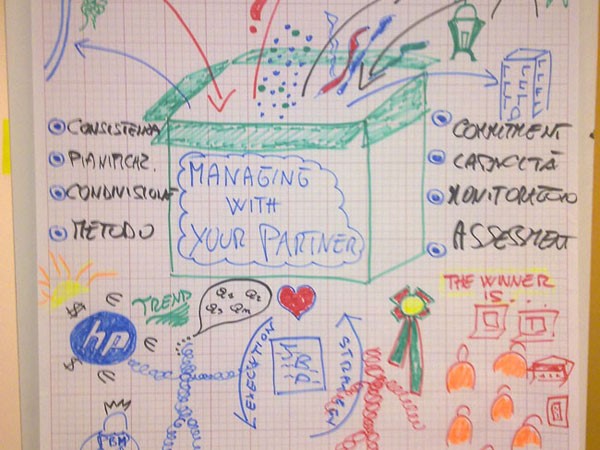 CONSISTENZA
PIANIFICAZ.
CONDIVISIONE
METODO
MANAGING
WITH
YOUR PARTNER
COMMITMENT
CAPACITÀ
MONITORAGGIO
ASSESSMENT
TREND
Q1 Q2
Q3 Qm
hp
EXECUTION
THE WINNER
IS...
IBM